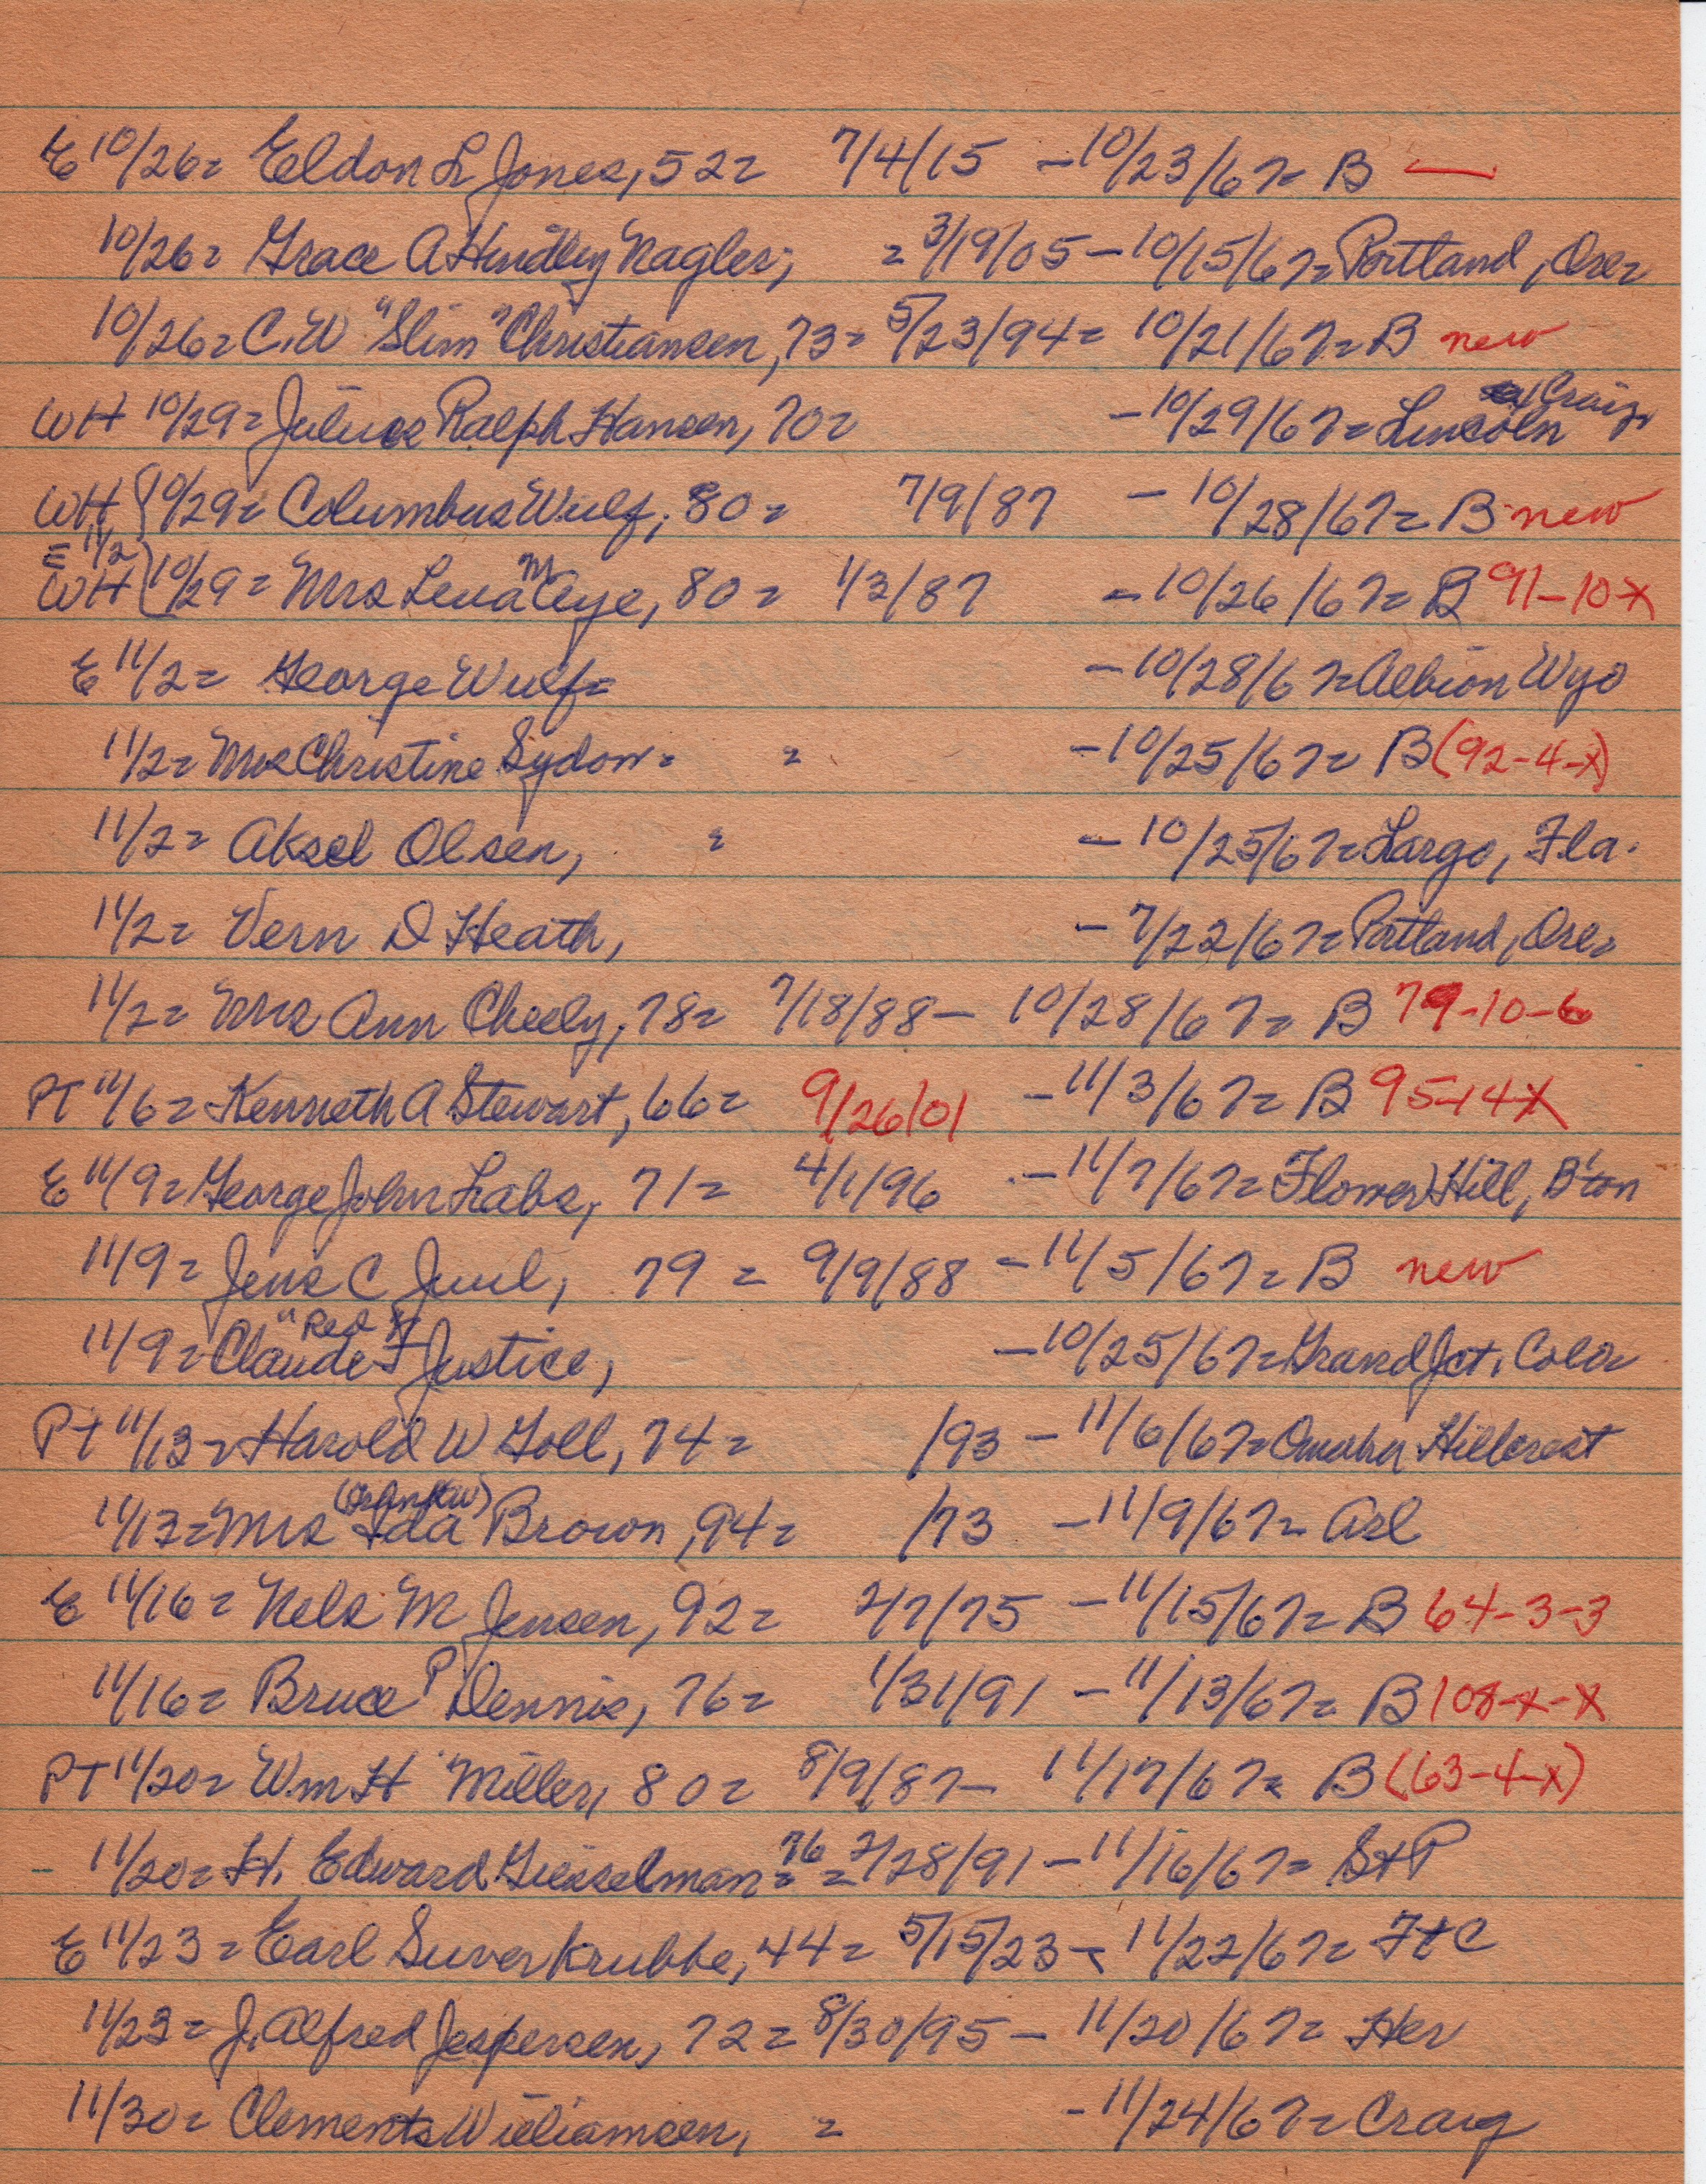 E 10/26= Eldon L Jones, 52= 7/4/15 - 10/23/67= B —
10/26= Grace A Hindley Nagler; = 3/19/05 - 10/15/67= Portland, Ore=
10/26= C.W "Slim" Christiansen, 73= 5/23/94= 10/21/67= B new
WH 10/29= Julius Ralph Hansen, 70= - 10/29/67= Lincoln Craig
WH 10/29= Columbus Wulf, 80= 7/9/87 - 10/28/67= B new
E 11/2
WH 10/29= Mrs Lena M Aye, 80= 1/3/87 - 10/26/67= B 91-10-x
E 11/2= George Wulf= - 10/28/67= Albion Wyo
11/2= Mrs Christine Sydow= = - 10/25/67= B (92-4-x)
11/2= Aksel Olsen, = - 10/25/67= Largo, Fla.
11/2= Vern D Heath, - 7/22/67= Portland, Ore=
11/2= Mrs Ann Cheely, 78= 7/18/88 - 10/28/67= B 79-10-6
PT 11/6= Kenneth A Stewart, 66= 9/26/01 - 11/3/67= B 95-14X
E 11/9= George John Labs, 71= 4/1/96 - 11/7/67= Flower Hill, B'ton
11/9= Jens C Juul, 79= 9/9/88 - 11/5/67= B new
11/9= Claude "Red" F Justice, - 10/25/67= Grand Jct. Colo=
PT 11/13= Harold W Goll, 74= /93 - 11/6/67= Omaha Hillcrest
11/13= Mrs Ida Brown, 94= /73 - 11/9/67= Arl
E 11/16= Nels M Jensen, 92= 2/7/75 - 11/15/67= B 64-3-3
11/16= Bruce P Dennis, 76= 1/31/91 - 11/13/67= B 108-x-x
PT 11/20= Wm H Miller, 80= 8/9/87 - 11/17/67= B (63-4-x)
11/20= H. Edward Giesselman= 76= 2/28/91 - 11/16/67= St P
E 11/23= Earl Suverkrubbe, 44= 5/15/23 - 11/22/67= Ft C
11/23= J. Alfred Jespersen, 72= 8/30/95 - 11/20/67= Her
11/30= Clements Williamsen, = - 11/24/67= Craig